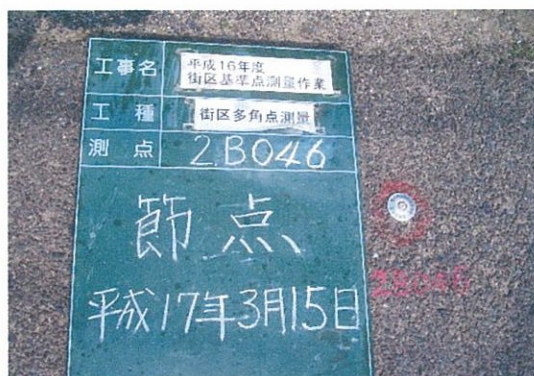 工事名
平成16年度
街区基準点測量作業
工種
街区多角点測量
測点
2B046
節点
平成17年3月15日
2B046